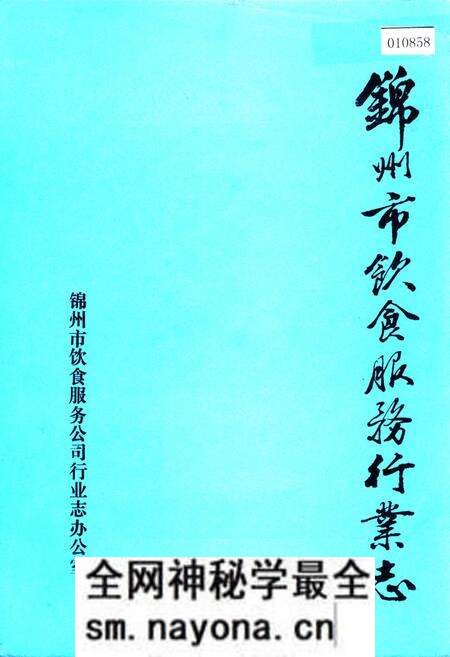 010858
錦州市飲食服務行業志
锦州市饮食服务公司行业志办公室
全网神秘学最全
sm.nayona.cn